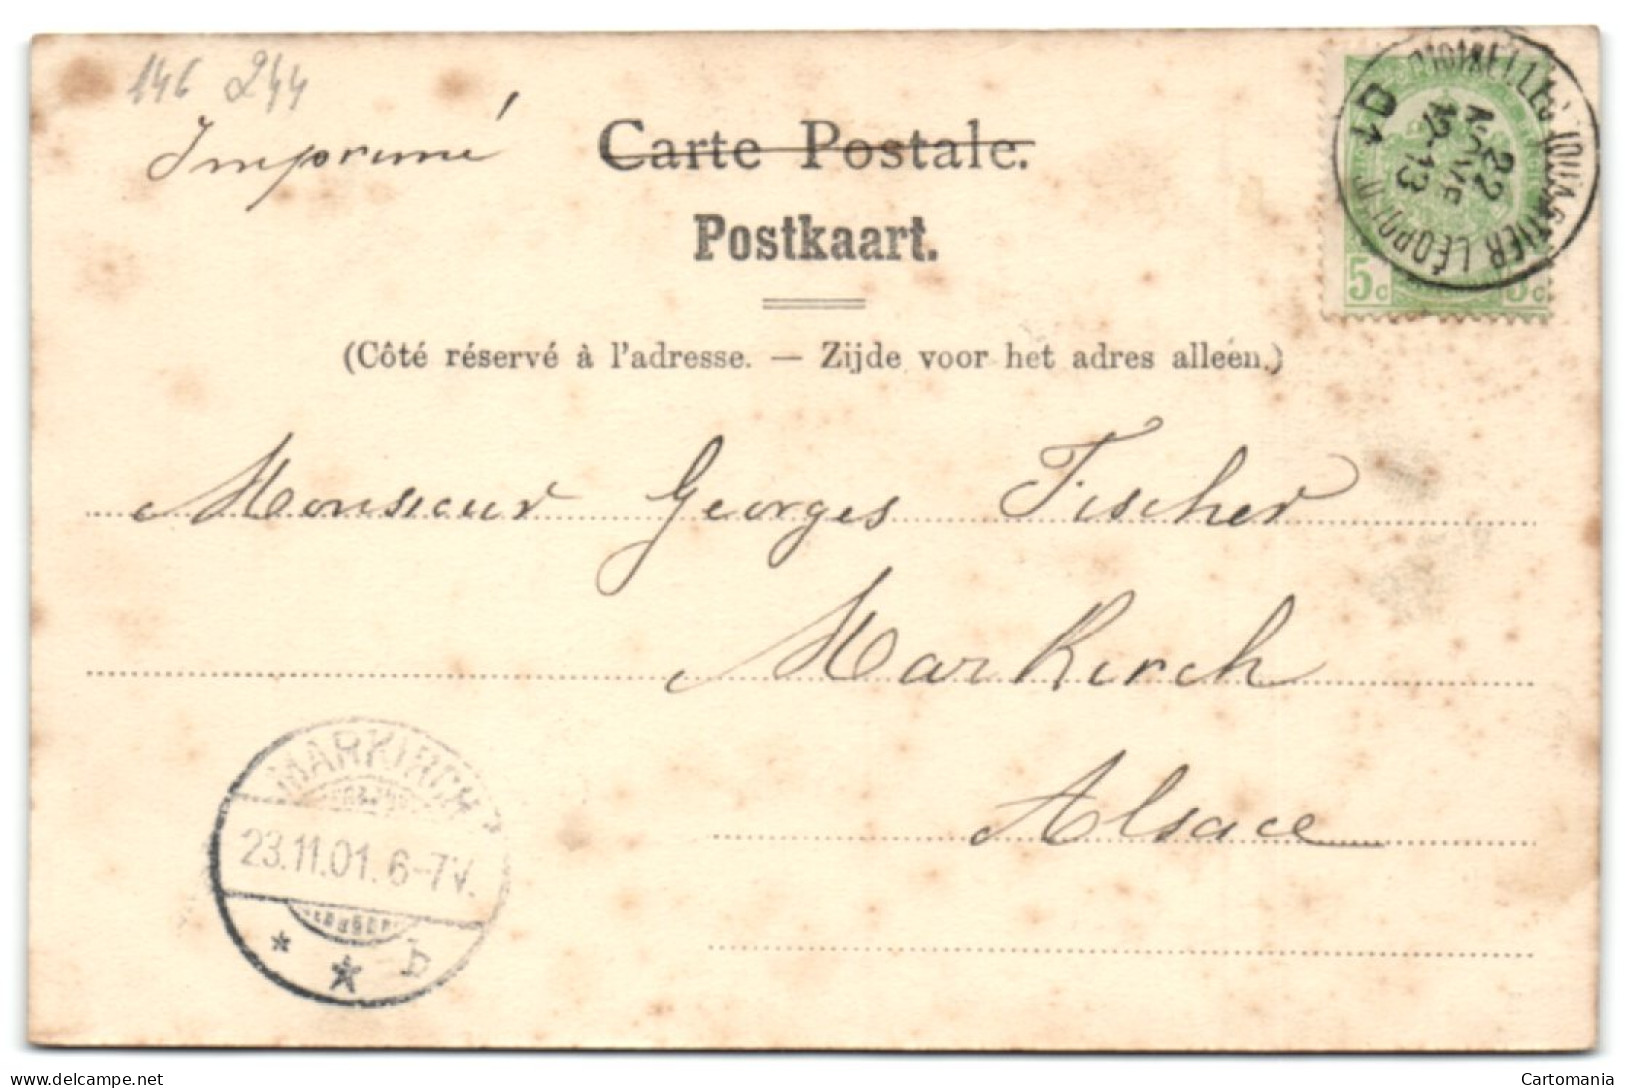 146 244
Imprimé
Carte Postale.
Postkaart.
(Côté réservé à l'adresse. — Zijde voor het adres alleen.)
IXELLES QUARTIER LÉOPOLD
22
NOVE
13
D1
5c 5c
Monsieur Georges Fischer
Markirch
Alsace
MARKIRCH
23.11.01. 6-7V.
* * b
www.delcampe.net
Cartomania